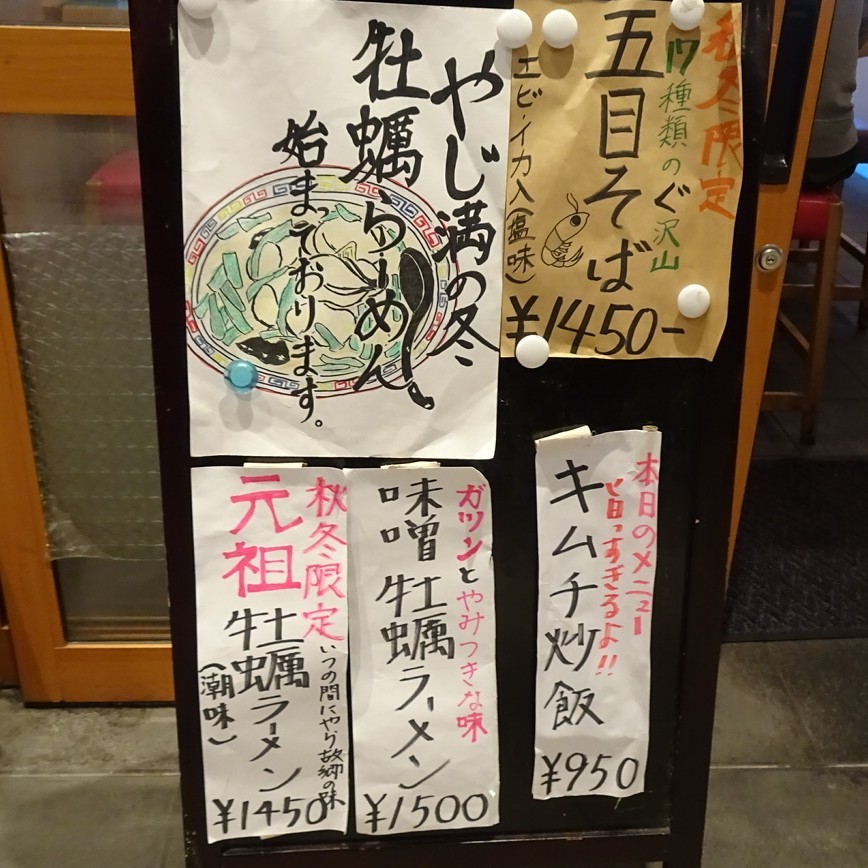 秋冬限定
17種類のぐ沢山
五目そば
エビ・イカ入(塩味)
¥1450-
やじ満の冬
牡蠣らーめん
始まております。
本日のメニュー
旨っすぎるよ!!
キムチ炒飯
¥950
ガツンとやみつきな味
味噌牡蠣ラーメン
¥1500
秋冬限定
いつの間にやら故郷の味
元祖牡蠣ラーメン
(潮味)
¥1450